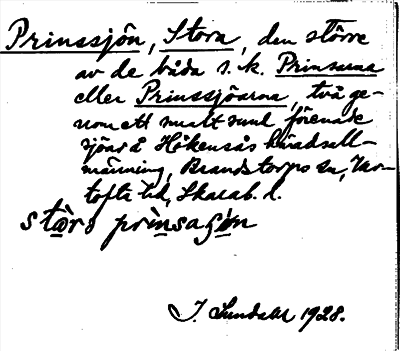 Prinssjön, Stora, den större
av de båda s. k. Prinsarna
eller Prinssjöarna, två ge-
nom ett smalt sund förenade
sjöar å Hökensås häradsall-
männing, Brandstorps sn, Var-
tofta hd, Skarab. l.
stòra prìnsagòn
J. Sundblad 1928.